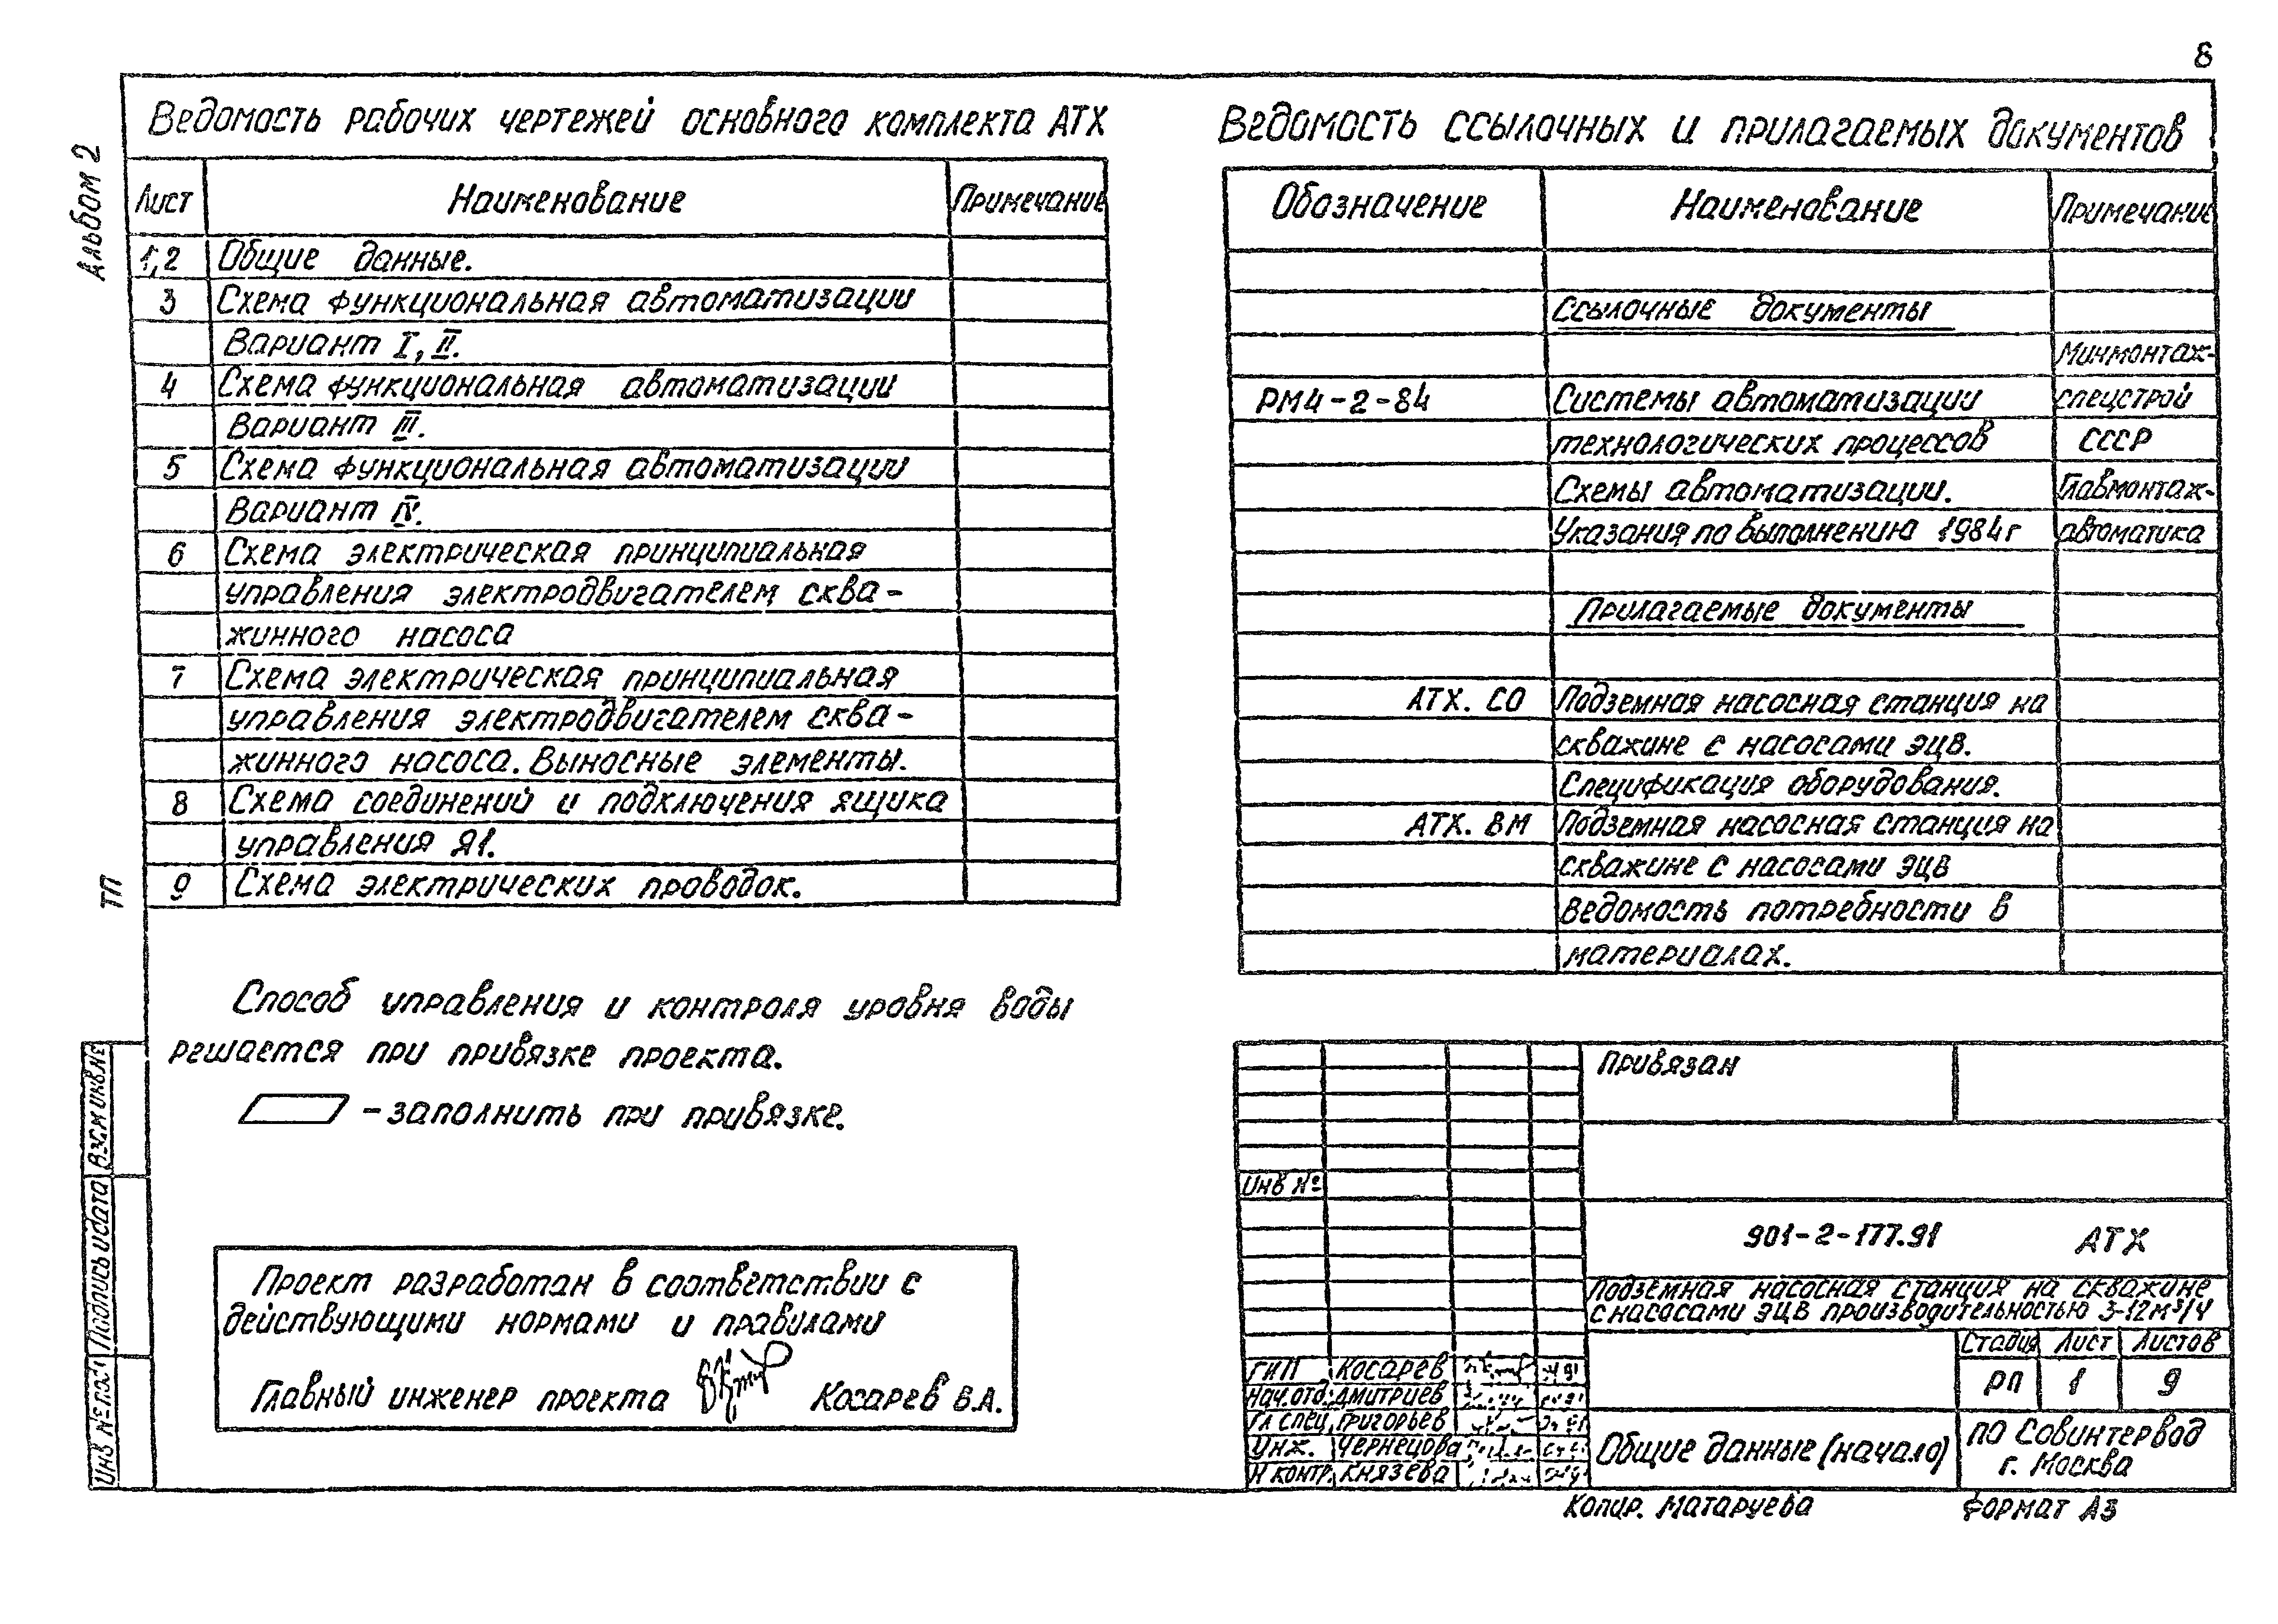 8
Альбом 2
ТП
Ведомость рабочих чертежей основного комплекта АТХ
Лист Наименование Примечание
1,2 Общие данные.
3 Схема функциональная автоматизации
Вариант I, II.
4 Схема функциональная автоматизации
Вариант III.
5 Схема функциональная автоматизации
Вариант IV.
6 Схема электрическая принципиальная
управления электродвигателем сква-
жинного насоса
7 Схема электрическая принципиальная
управления электродвигателем сква-
жинного насоса. Выносные элементы.
8 Схема соединений и подключения ящика
управления Я1.
9 Схема электрических проводок.
Способ управления и контроля уровня воды
решается при привязке проекта.
- заполнить при привязке.
Проект разработан в соответствии с
действующими нормами и правилами
Главный инженер проекта Косарев В.А.
Ведомость ссылочных и прилагаемых документов
Обозначение Наименование Примечание
Ссылочные документы
Минмонтаж-
РМ4-2-84 Системы автоматизации спецстрой
технологических процессов СССР
Схемы автоматизации. Главмонтаж-
Указания по выполнению 1984г автоматика
Прилагаемые документы
АТХ. СО Подземная насосная станция на
скважине с насосами ЭЦВ.
Спецификация оборудования.
АТХ. ВМ Подземная насосная станция на
скважине с насосами ЭЦВ
Ведомость потребности в
материалах.
Привязан
Инв №
901-2-177.91 АТХ
Подземная насосная станция на скважине
с насосами ЭЦВ производительностью 3-12м³/ч
Стадия Лист Листов
РП 1 9
ГИП Косарев
Нач.отд. Дмитриев
Гл спец. Григорьев
Инж. Чернецова
Н контр. Князева
Общие данные (начало)
ПО Совинтервод
г. Москва
Взам инв.№
Подпись и дата
Инв № подл
Копир. Матаруева Формат А3